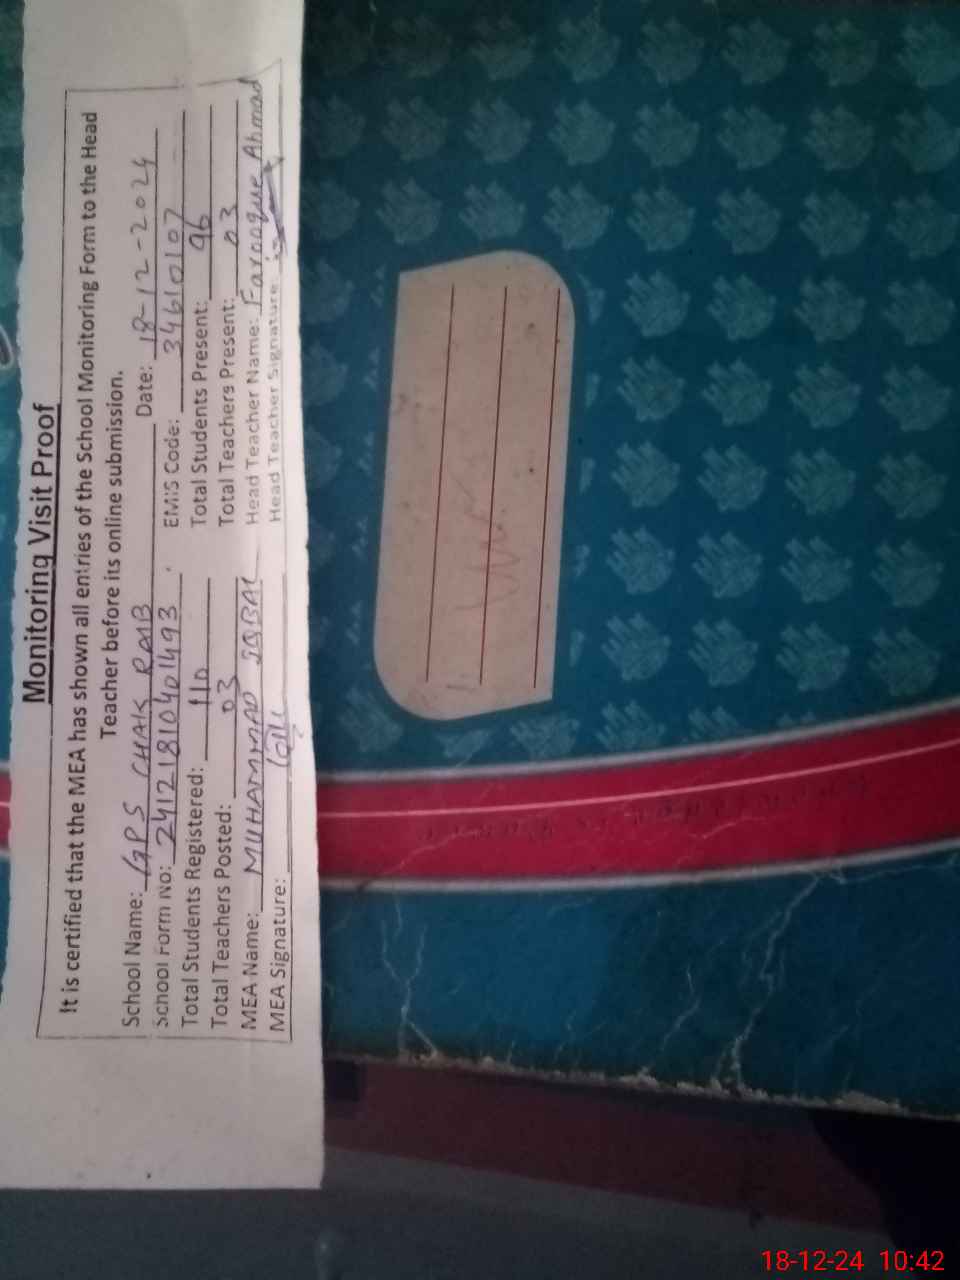 Monitoring Visit Proof
It is certified that the MEA has shown all entries of the School Monitoring Form to the Head
Teacher before its online submission.
School Name: GPS CHAK RAIB Date: 18-12-2024
School Form No: 24121810401493 EMIS Code: 34610107
Total Students Registered: 110 Total Students Present: 96
Total Teachers Posted: 03 Total Teachers Present: 03
MEA Name: MUHAMMAD IQBAL Head Teacher Name: Farooque Ahmad
MEA Signature: Head Teacher Signature:
18-12-24 10:42